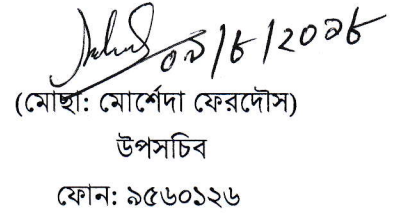 ০৯/৮/২০১৮
(মোছা: মোর্শেদা ফেরদৌস)
উপসচিব
ফোন: ৯৫৬০১২৬